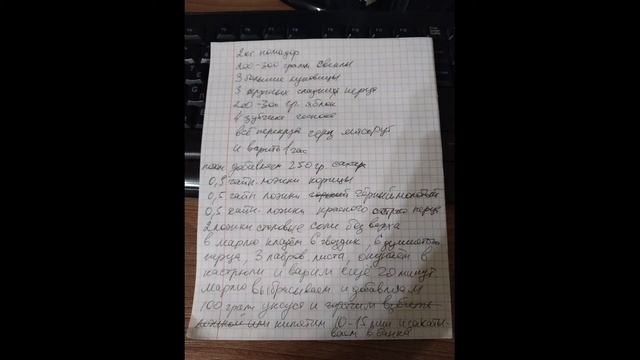 2 кг помидор
200-300 грамм свеклы
3 большие луковицы
3 крупных сладких перца
200-300 гр. яблок
6 зубчика чеснока
всё перекрут через мясоруб
и варить 1 час
потом добавляем 250 гр. сахар
0,5 чайн. ложки корицы
0,5 чайн ложки чёрный молотый
0,5 чайн. ложки красного острого перца
2 ложки столовые соли без верха
в марлю кладём 6 гвоздик, 6 душистого
перца, 3 лавров листа, опускаем в
кастрюлю и варим ещё 20 минут
марлю выбрасываем и добавляем
100 грам уксуса и
кипятим 10-15 мин и закаты-
ваем в банки